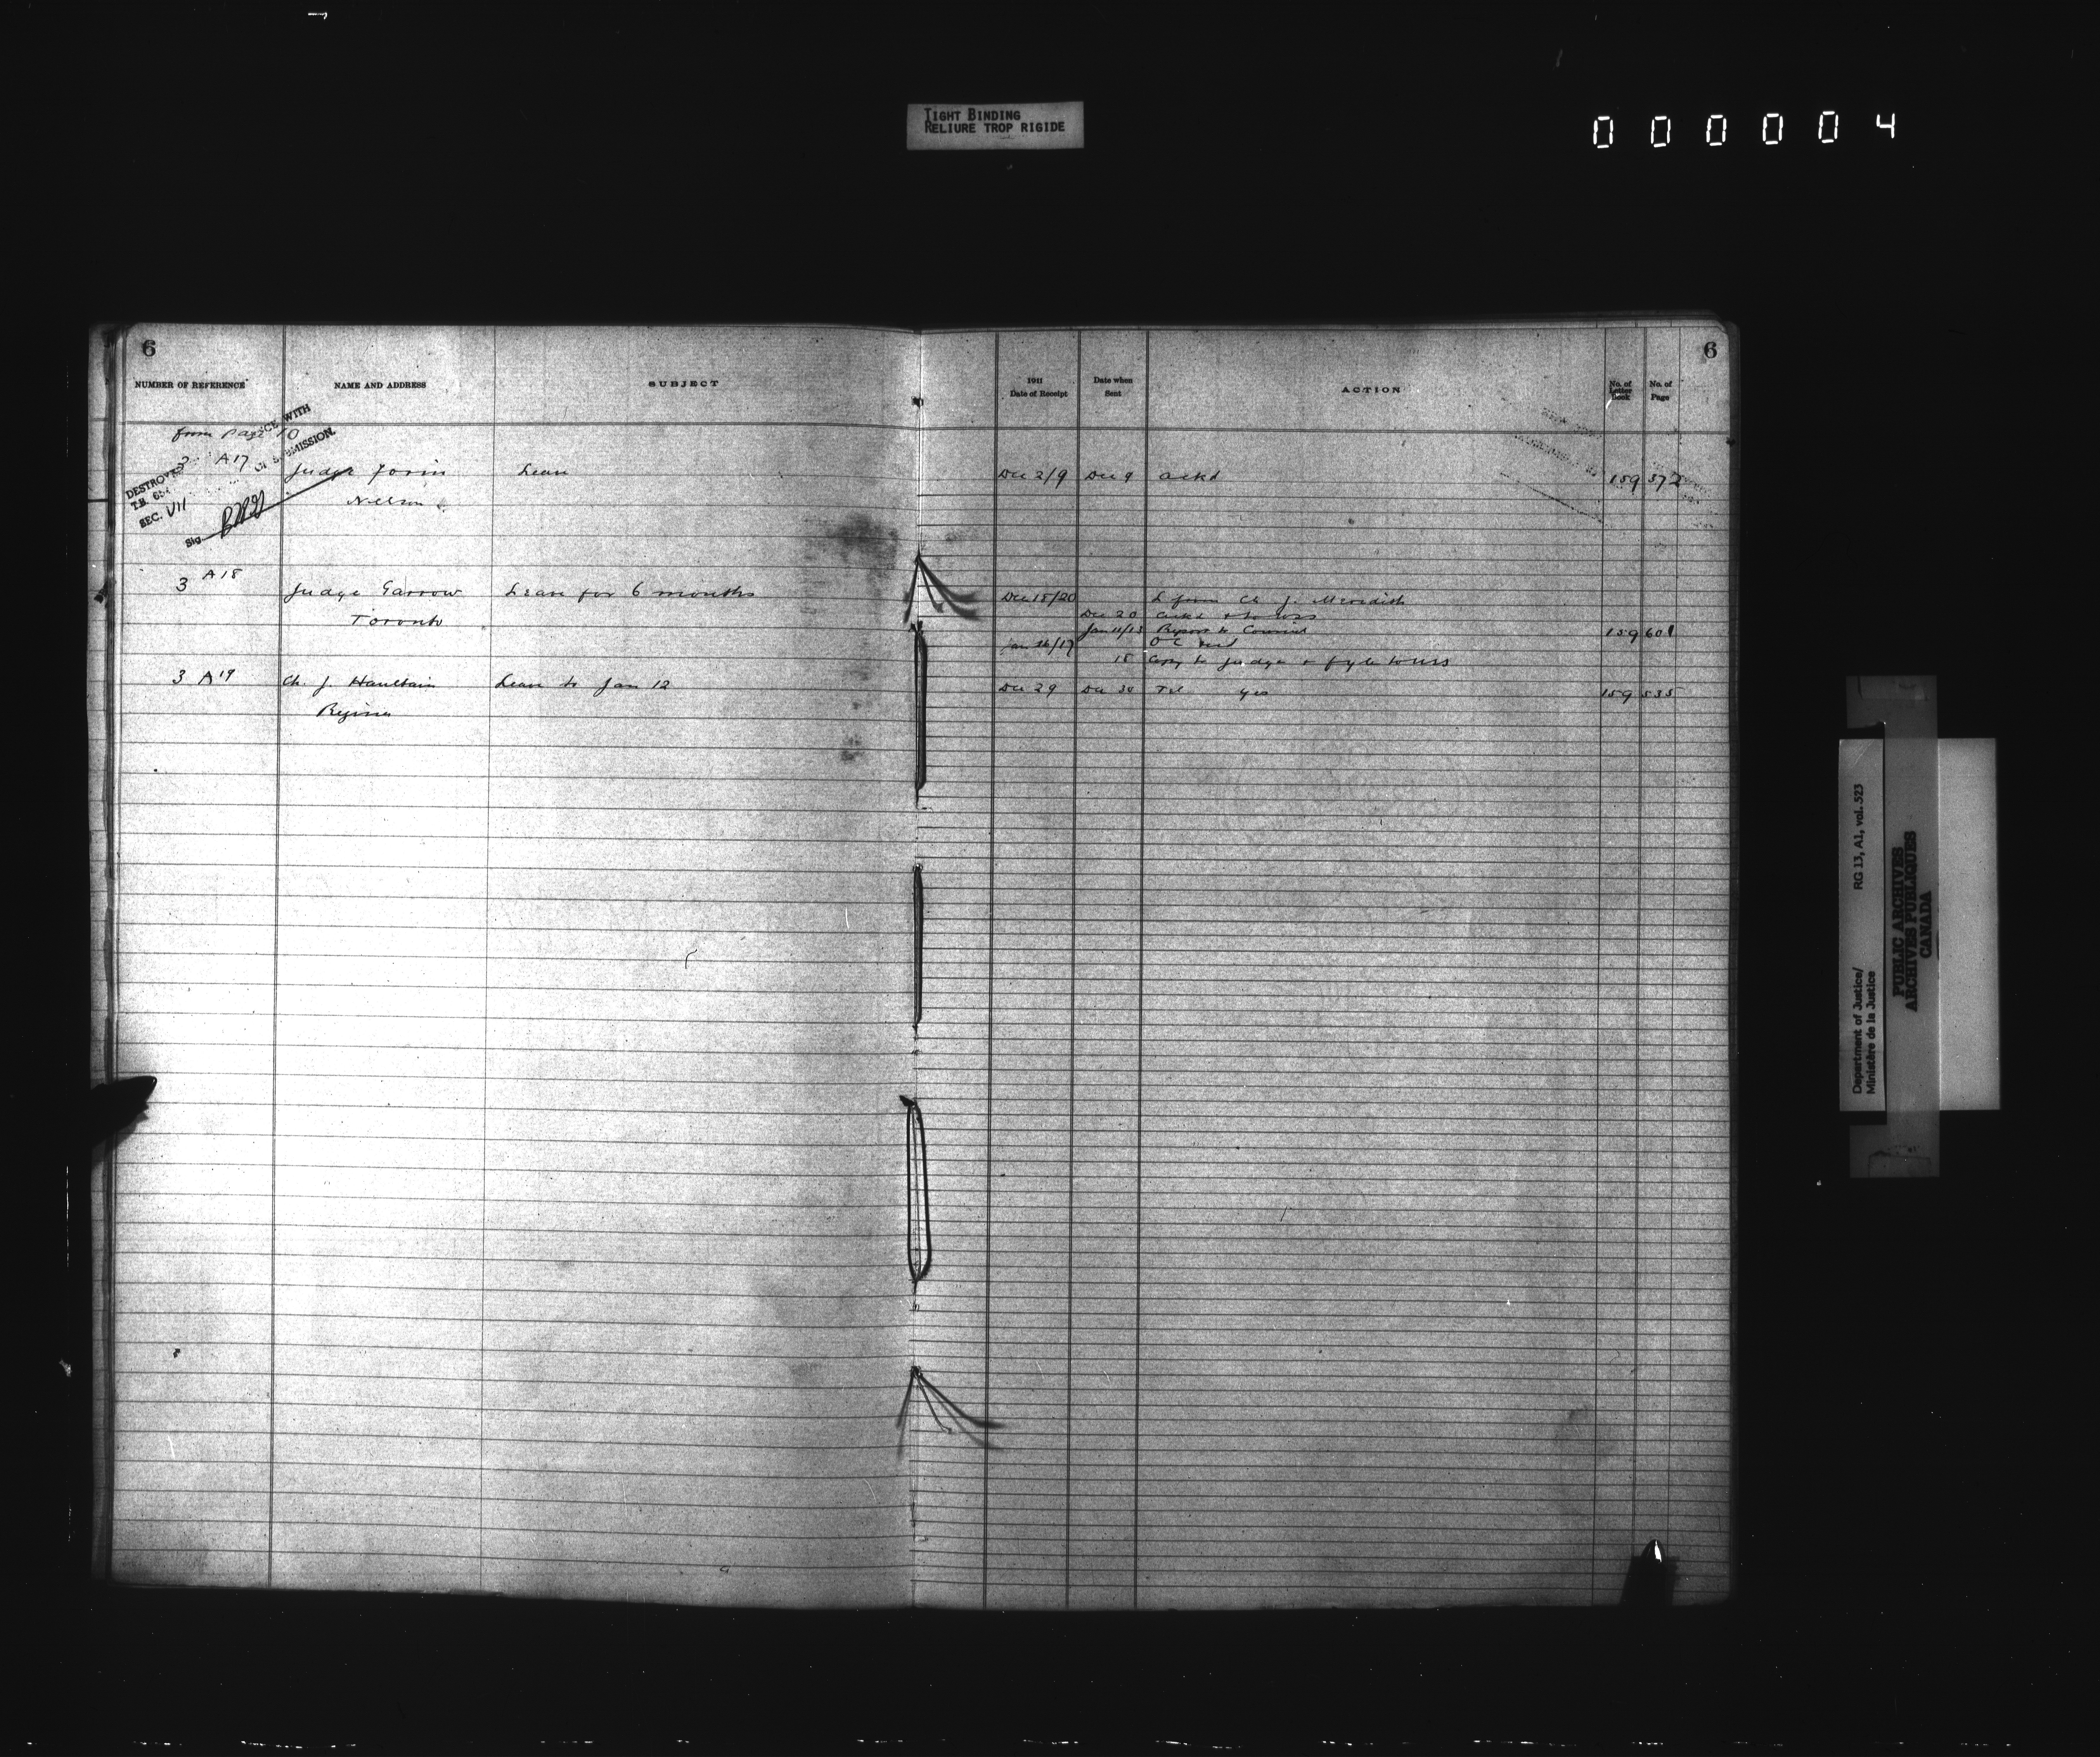 TIGHT BINDING
RELIURE TROP RIGIDE
000004
6
6
NUMBER OF REFERENCE NAME AND ADDRESS SUBJECT 1911 Date of Receipt Date when Sent ACTION No. of Letter Book No. of Page
from Page 10
DESTROYED
T.B.
SEC. VII
Sig.
CE WITH
SUBMISSION.
A17 Judge Forin Leave Dec 2/9 Dec 9 ackd 159 572
Nelson
3 A18 Judge Garrow Leave for 6 months Dec 15/20 L from Ch J. Meredith
Toronto Dec 20 ackd
Jan 11/13 Report to Council 159 601
Jan 16/17 O C recd
18 Copy to Judge &
3 A19 Ch. J. Haultain Leave to Jan 12 Dec 29 Dec 30 Tel yes 159 535
Regina
Department of Justice/ RG 13, A1, vol. 523
Ministère de la Justice
PUBLIC ARCHIVES
ARCHIVES PUBLIQUES
CANADA